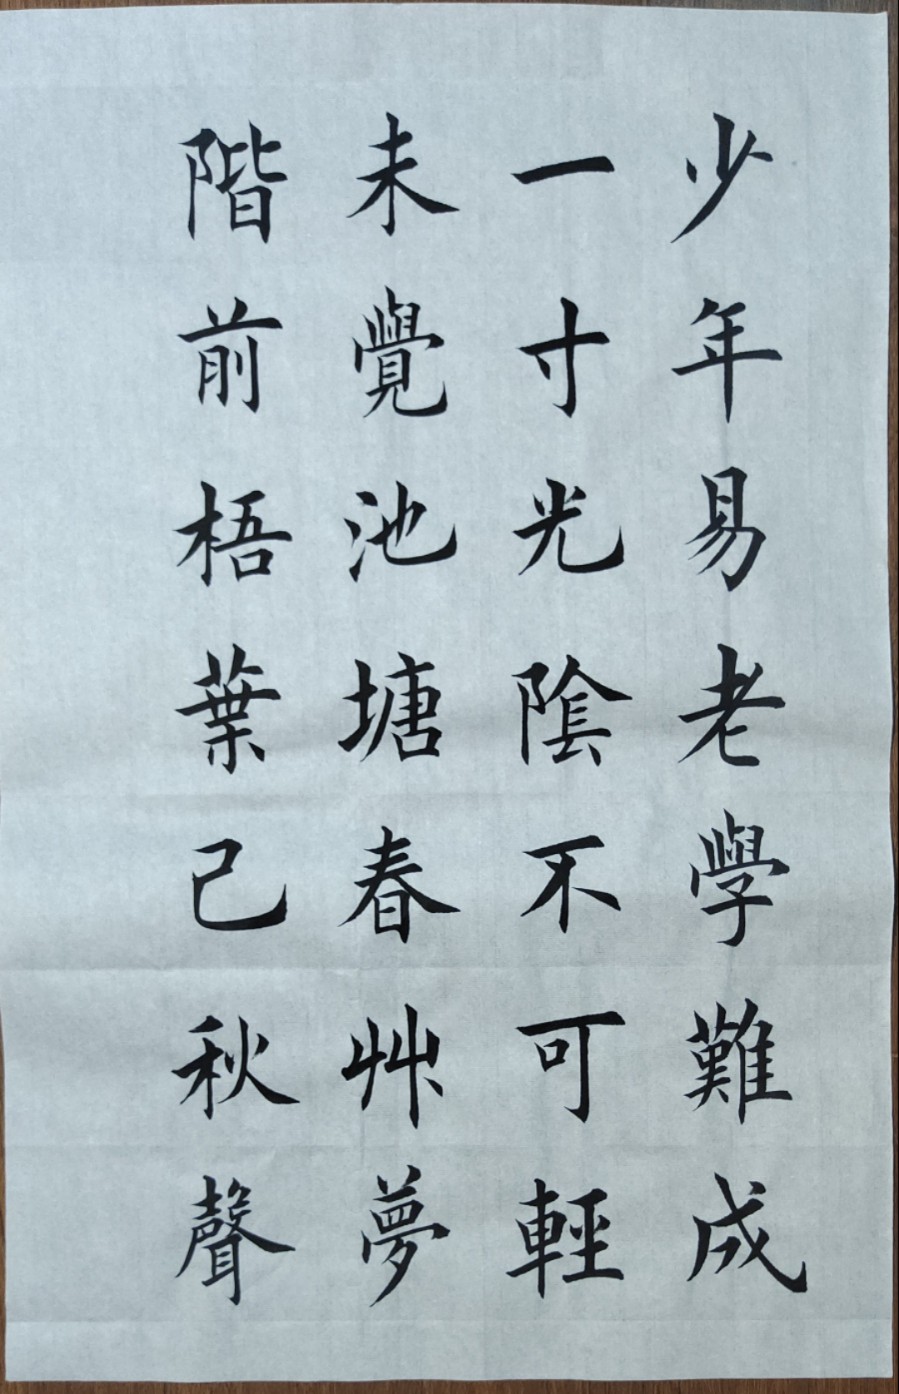 少年易老學難成
一寸光陰不可輕
未覺池塘春艸夢
階前梧葉己秋聲